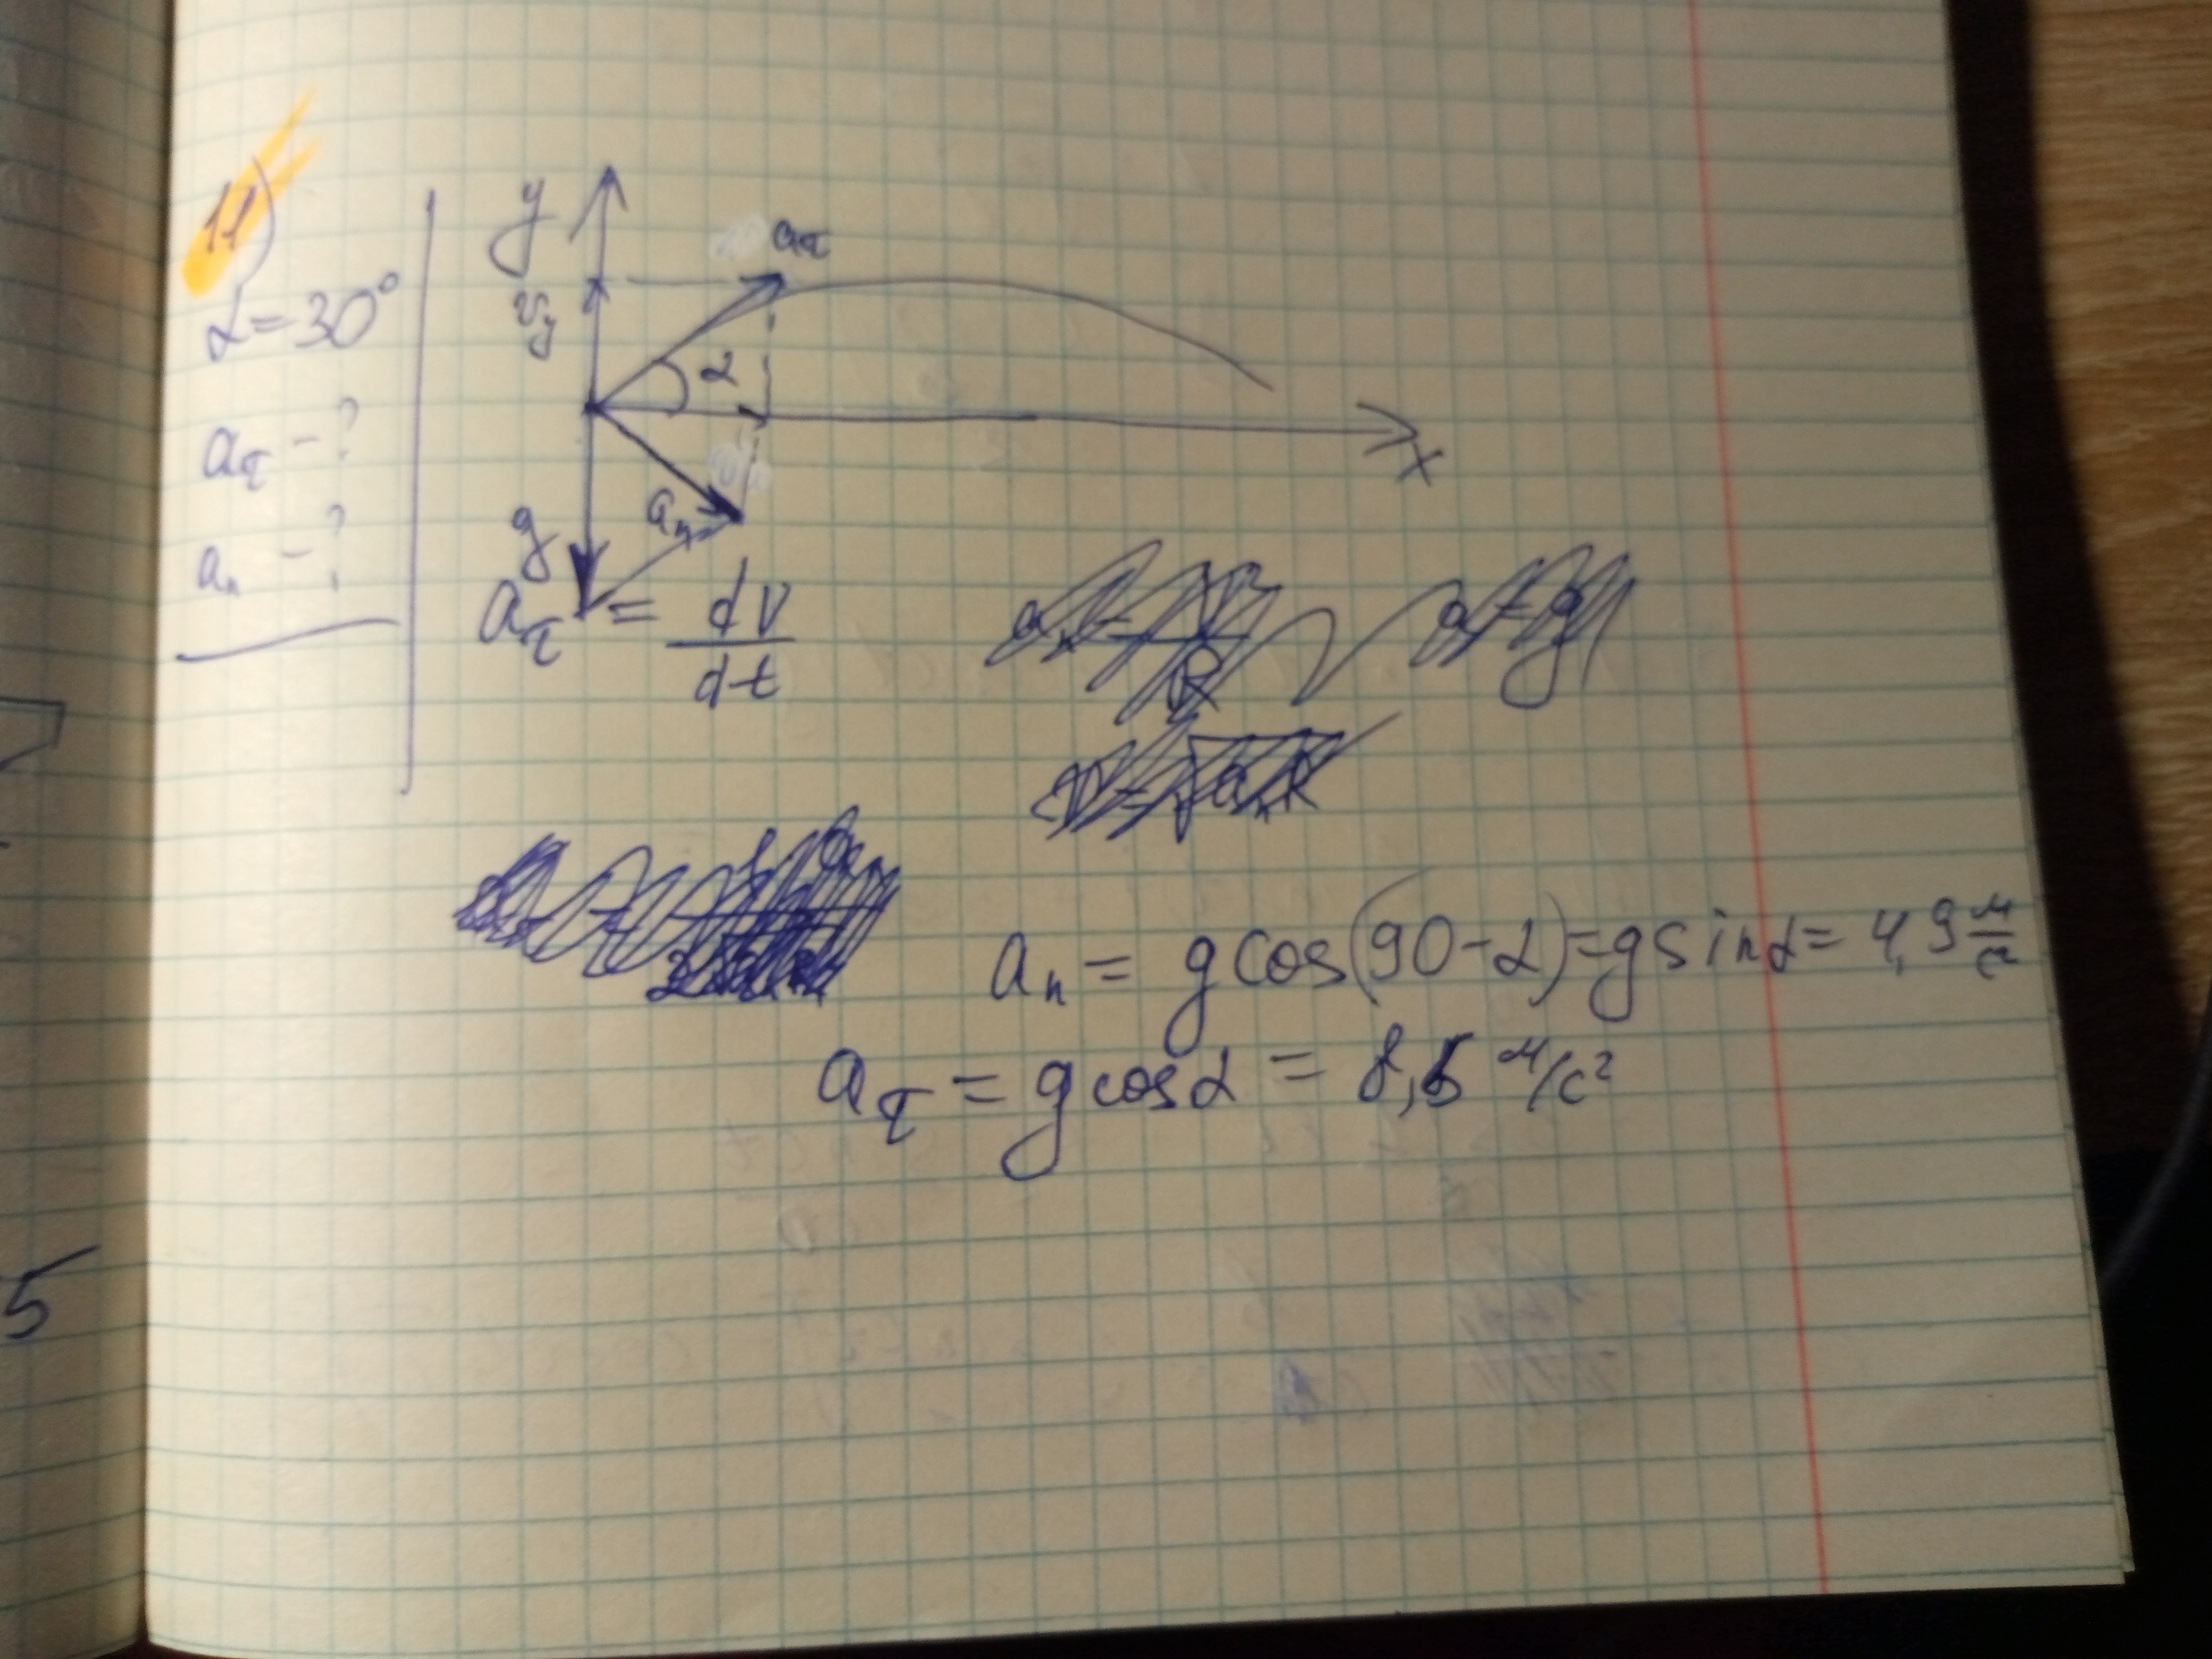 11)
α = 30°
aτ - ?
an - ?
y
vy
aτ
α
x
g
an
aτ = dV/dt
an = g cos(90-α) = g sin α = 4,9 м/с²
aτ = g cos α = 8,5 м/с²
5